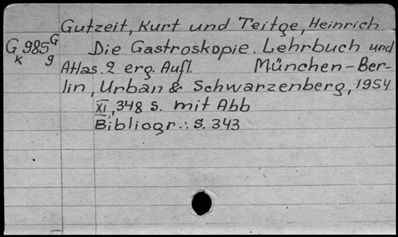 Gutzeit, Kurt und Teitge, Heinrich
G 985 G
k g
Die Gastroskopie. Lehrbuch und
Atlas. 2 erg. Aufl. München-Ber-
lin, Urban & Schwarzenberg, 1954
XI, 348 S. mit Abb
Bibliogr.: S. 343